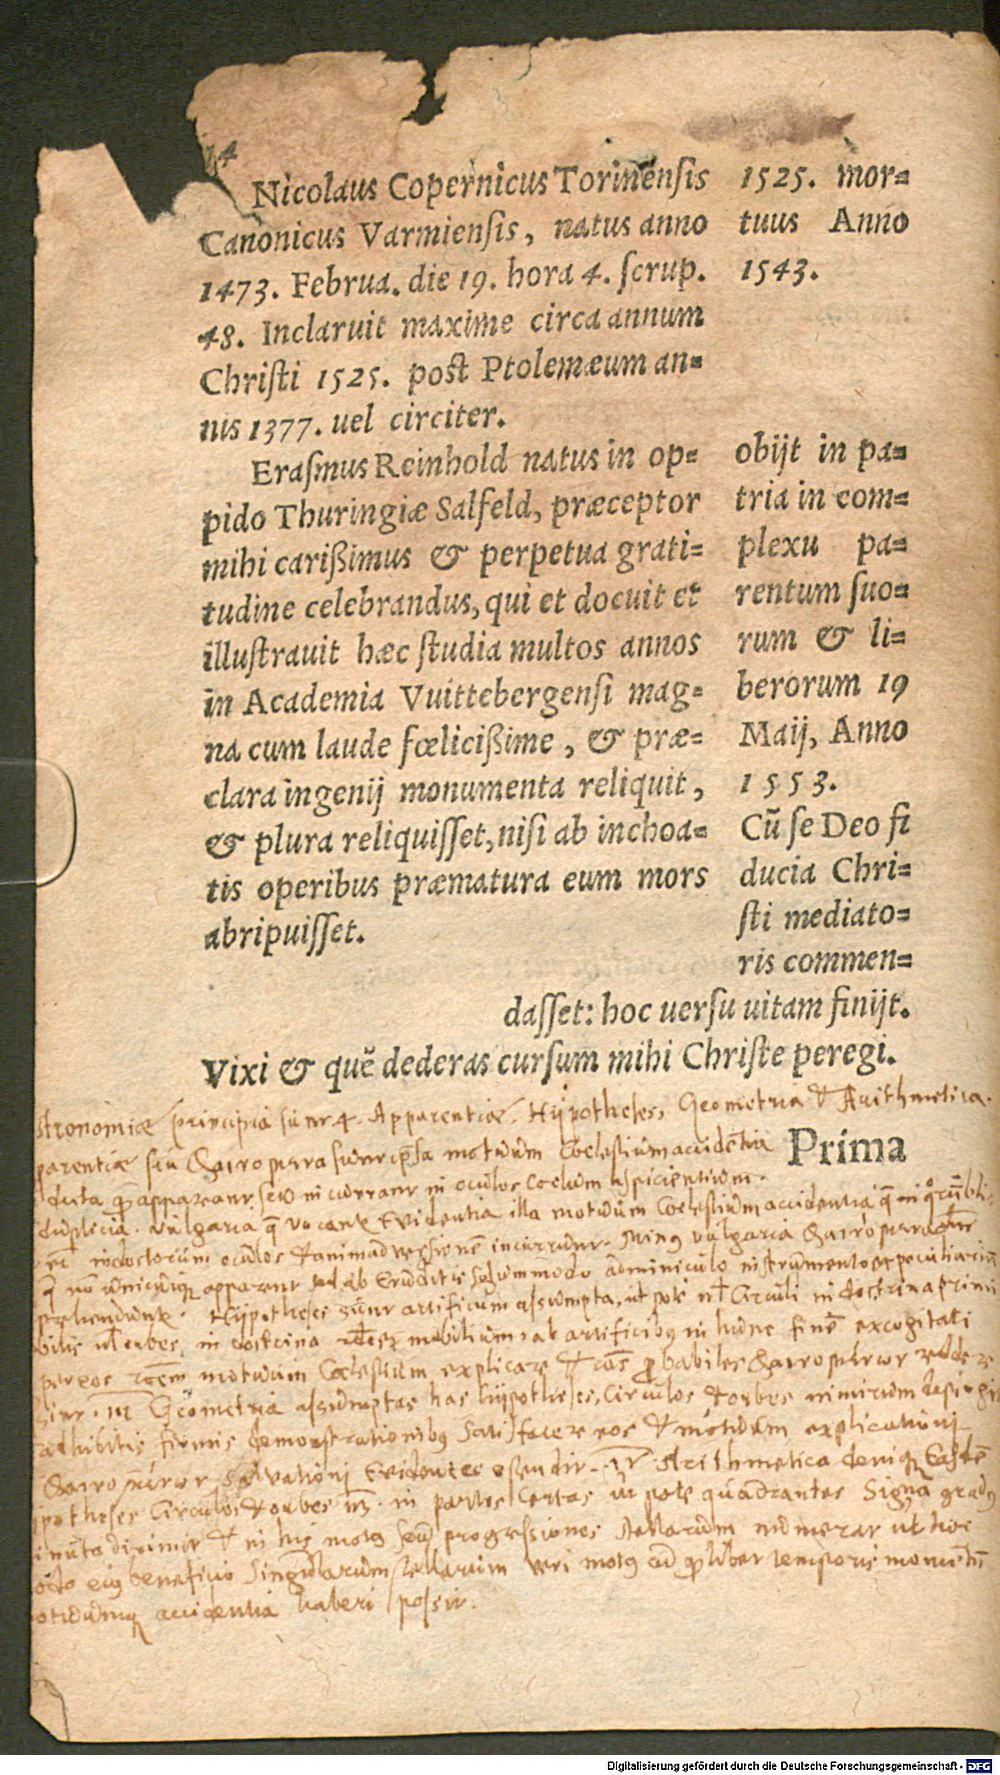 14
Nicolaus Copernicus Torinensis
Canonicus Varmiensis, natus anno
1473. Februa. die 19. hora 4. scrup.
48. Inclaruit maxime circa annum
Christi 1525. post Ptolemæum an=
nis 1377. uel circiter.
1525. mor=
tuus Anno
1543.
Erasmus Reinhold natus in op=
pido Thuringiæ Salfeld, præceptor
mihi carißimus & perpetua grati=
tudine celebrandus, qui et docuit et
illustrauit hæc studia multos annos
in Academia Vuittebergensi mag=
na cum laude fœlicißime, & præ=
clara ingenij monumenta reliquit,
& plura reliquisset, nisi ab inchoa=
tis operibus præmatura eum mors
abripuisset.
obijt in pa=
tria in com=
plexu pa=
rentum suo=
rum & li=
berorum 19
Maij, Anno
1553.
Cũ se Deo fi
ducia Chri=
sti mediato=
ris commen=
dasset: hoc uersu uitam finijt.
Vixi & quẽ dederas cursum mihi Christe peregi.
stronomiæ principia sunt 4. Apparentiæ, Hypotheses, Geometria & Arithmetica.
Prima
parentiæ seu motuum Coelestium accidentia
in oculos Coelum aspicientium.
duplicia. Vulgaria Evidentia illa motuum Coelestium accidentia
indoctorum oculos & animadversionem incurrunt. Minus vulgaria
apparent sed ab Eruditis solummodo adminiculo instrumentorum
prehenduntur. Hypotheses sunt artificum assumpta, ut pote Circuli in doctrina primi
orbes, in doctrina mobilium ab artificibus in hunc finem excogitati
per eos motuum Coelestium explicare
Geometria assumptas has Hypotheses, Circulos & orbes nimirum
adhibitis firmis demonstrationibus satisfacere eos & motuum explicationi
Evidentes ostendit. Arithmetica denique
Hypotheses Circulos & orbes in partes Certas ut pote quadrantes Signa gradus
& in his motus seu progressiones stellarum numerat ut hoc
eius beneficio singularum stellarum veri motus ad temporis
accidentia haberi possit.
Digitalisierung gefördert durch die Deutsche Forschungsgemeinschaft - DFG